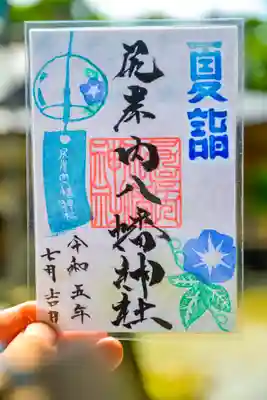 夏詣
尻岸内八幡神社
尻岸内八幡神社
令和五年
七月吉日